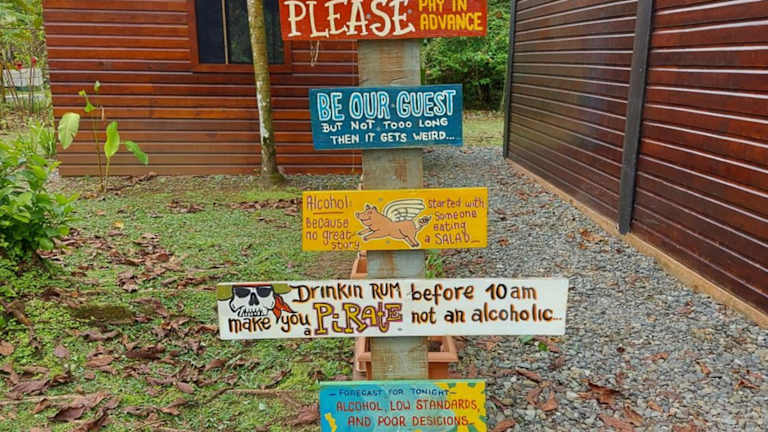 PLEASE PAY IN
ADVANCE
BE OUR GUEST
BUT NOT TOOO LONG
THEN IT GETS WEIRD...
Alcohol: started with
Because someone
no great eating
story a SALAD...
Drinkin RUM before 10am
make you a PiRatE not an alcoholic...
- FORECAST FOR TONIGHT -
ALCOHOL, LOW STANDARDS,
AND POOR DESICIONS